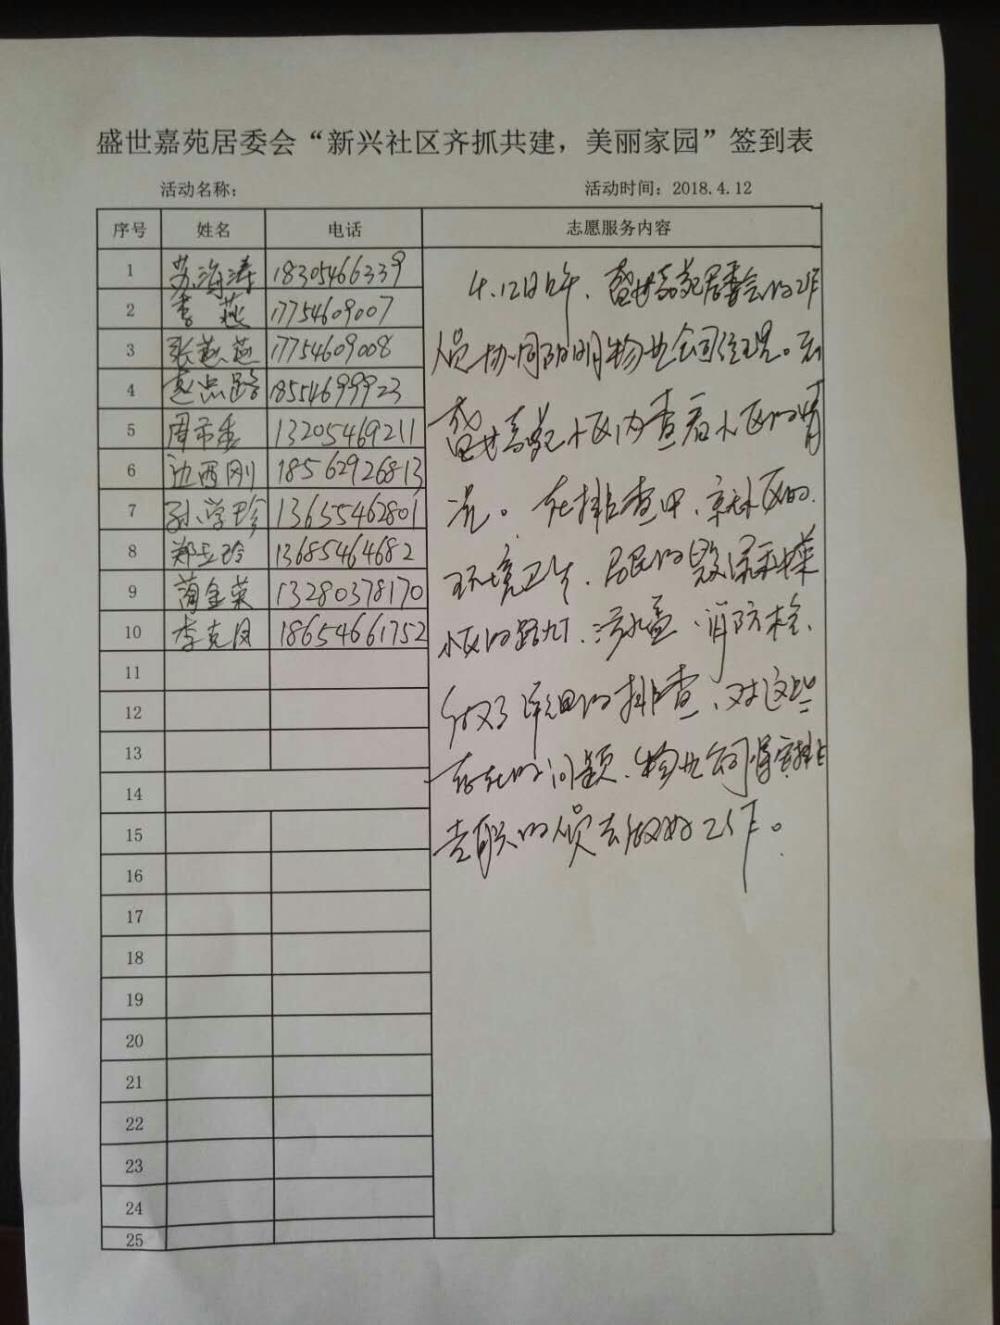 盛世嘉苑居委会“新兴社区齐抓共建，美丽家园”签到表
活动名称： 活动时间：2018.4.12
序号 姓名 电话 志愿服务内容
1 苏海涛 18305466339
2 李燕 17754609007
3 张燕燕 17754609008
4 18554699923
5 周希香 13205469211
6 边西刚 18562926813
7 孙学珍 13655462801
8 郑立玲 13685464682
9 蔺金荣 13280378170
10 李克凤 18654661752
11
12
13
14
15
16
17
18
19
20
21
22
23
24
25
4.12日上午、盛世嘉苑居委会的工作
人员协同阳明物业公司经理。到
盛世嘉苑小区内查看小区的情
况。在排查中、就小区的
环境卫生、居民的毁绿种菜
小区的路灯、污水盖、消防栓、
做了详细的排查、对这些
存在的问题、物业公司将安排
专职的人员去做好工作。